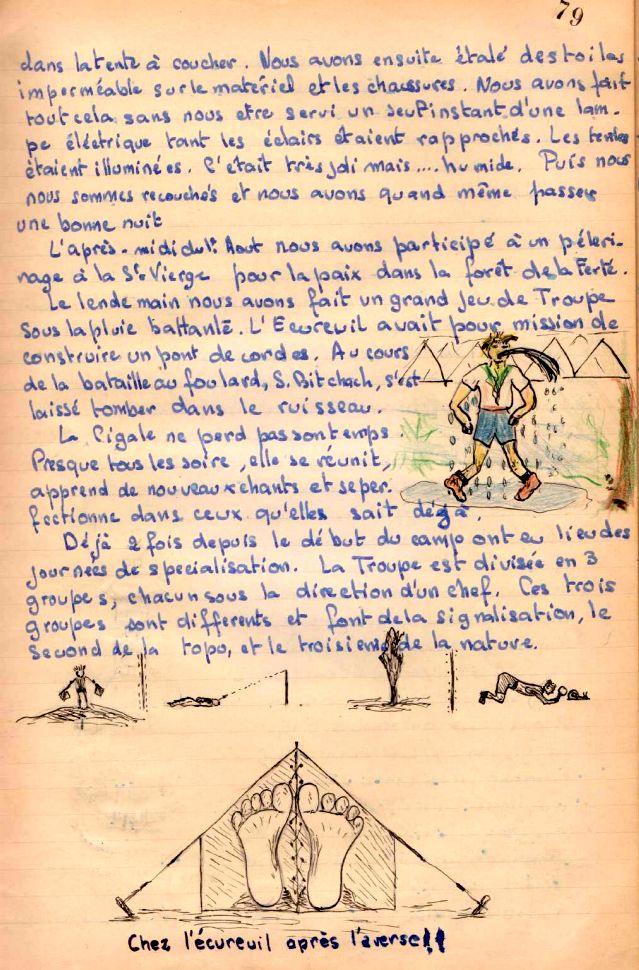 79
dans la tente à coucher. Nous avons ensuite étalé des toiles
imperméable sur le matériel et les chaussures. Nous avons fait
tout cela sans nous etre servi un seul instant d'une lam-
pe éléctrique tant les éclairs étaient rapprochés. Les tentes
étaient illuminées. C'était très joli mais.... humide. Puis nous
nous sommes recouchés et nous avons quand même passer
une bonne nuit
L'après-midi du 1er Aout nous avons participé à un péleri-
nage à la Ste Vierge pour la paix dans la forêt de la Ferté.
Le lendemain nous avons fait un grand Jeu de Troupe
sous la pluie battante. L'Ecureuil avait pour mission de
construire un pont de cordes. Au cours
de la bataille au foulard, S. Bitchach, s'est
laissé tomber dans le ruisseau.
La Cigale ne perd pas son temps.
Presque tous les soire, elle se réunit,
apprend de nouveaux chants et se per-
fectionne dans ceux qu'elles sait déjà.
Déjà 2 fois depuis le début du camp ont eu lieu des
journées de spécialisation. La Troupe est divisée en 3
groupes, chacun sous la direction d'un chef. Ces trois
groupes sont differents et font de la signalisation, le
second de la topo, et le troisieme de la nature.
Chez l'écureuil après l'averse!!